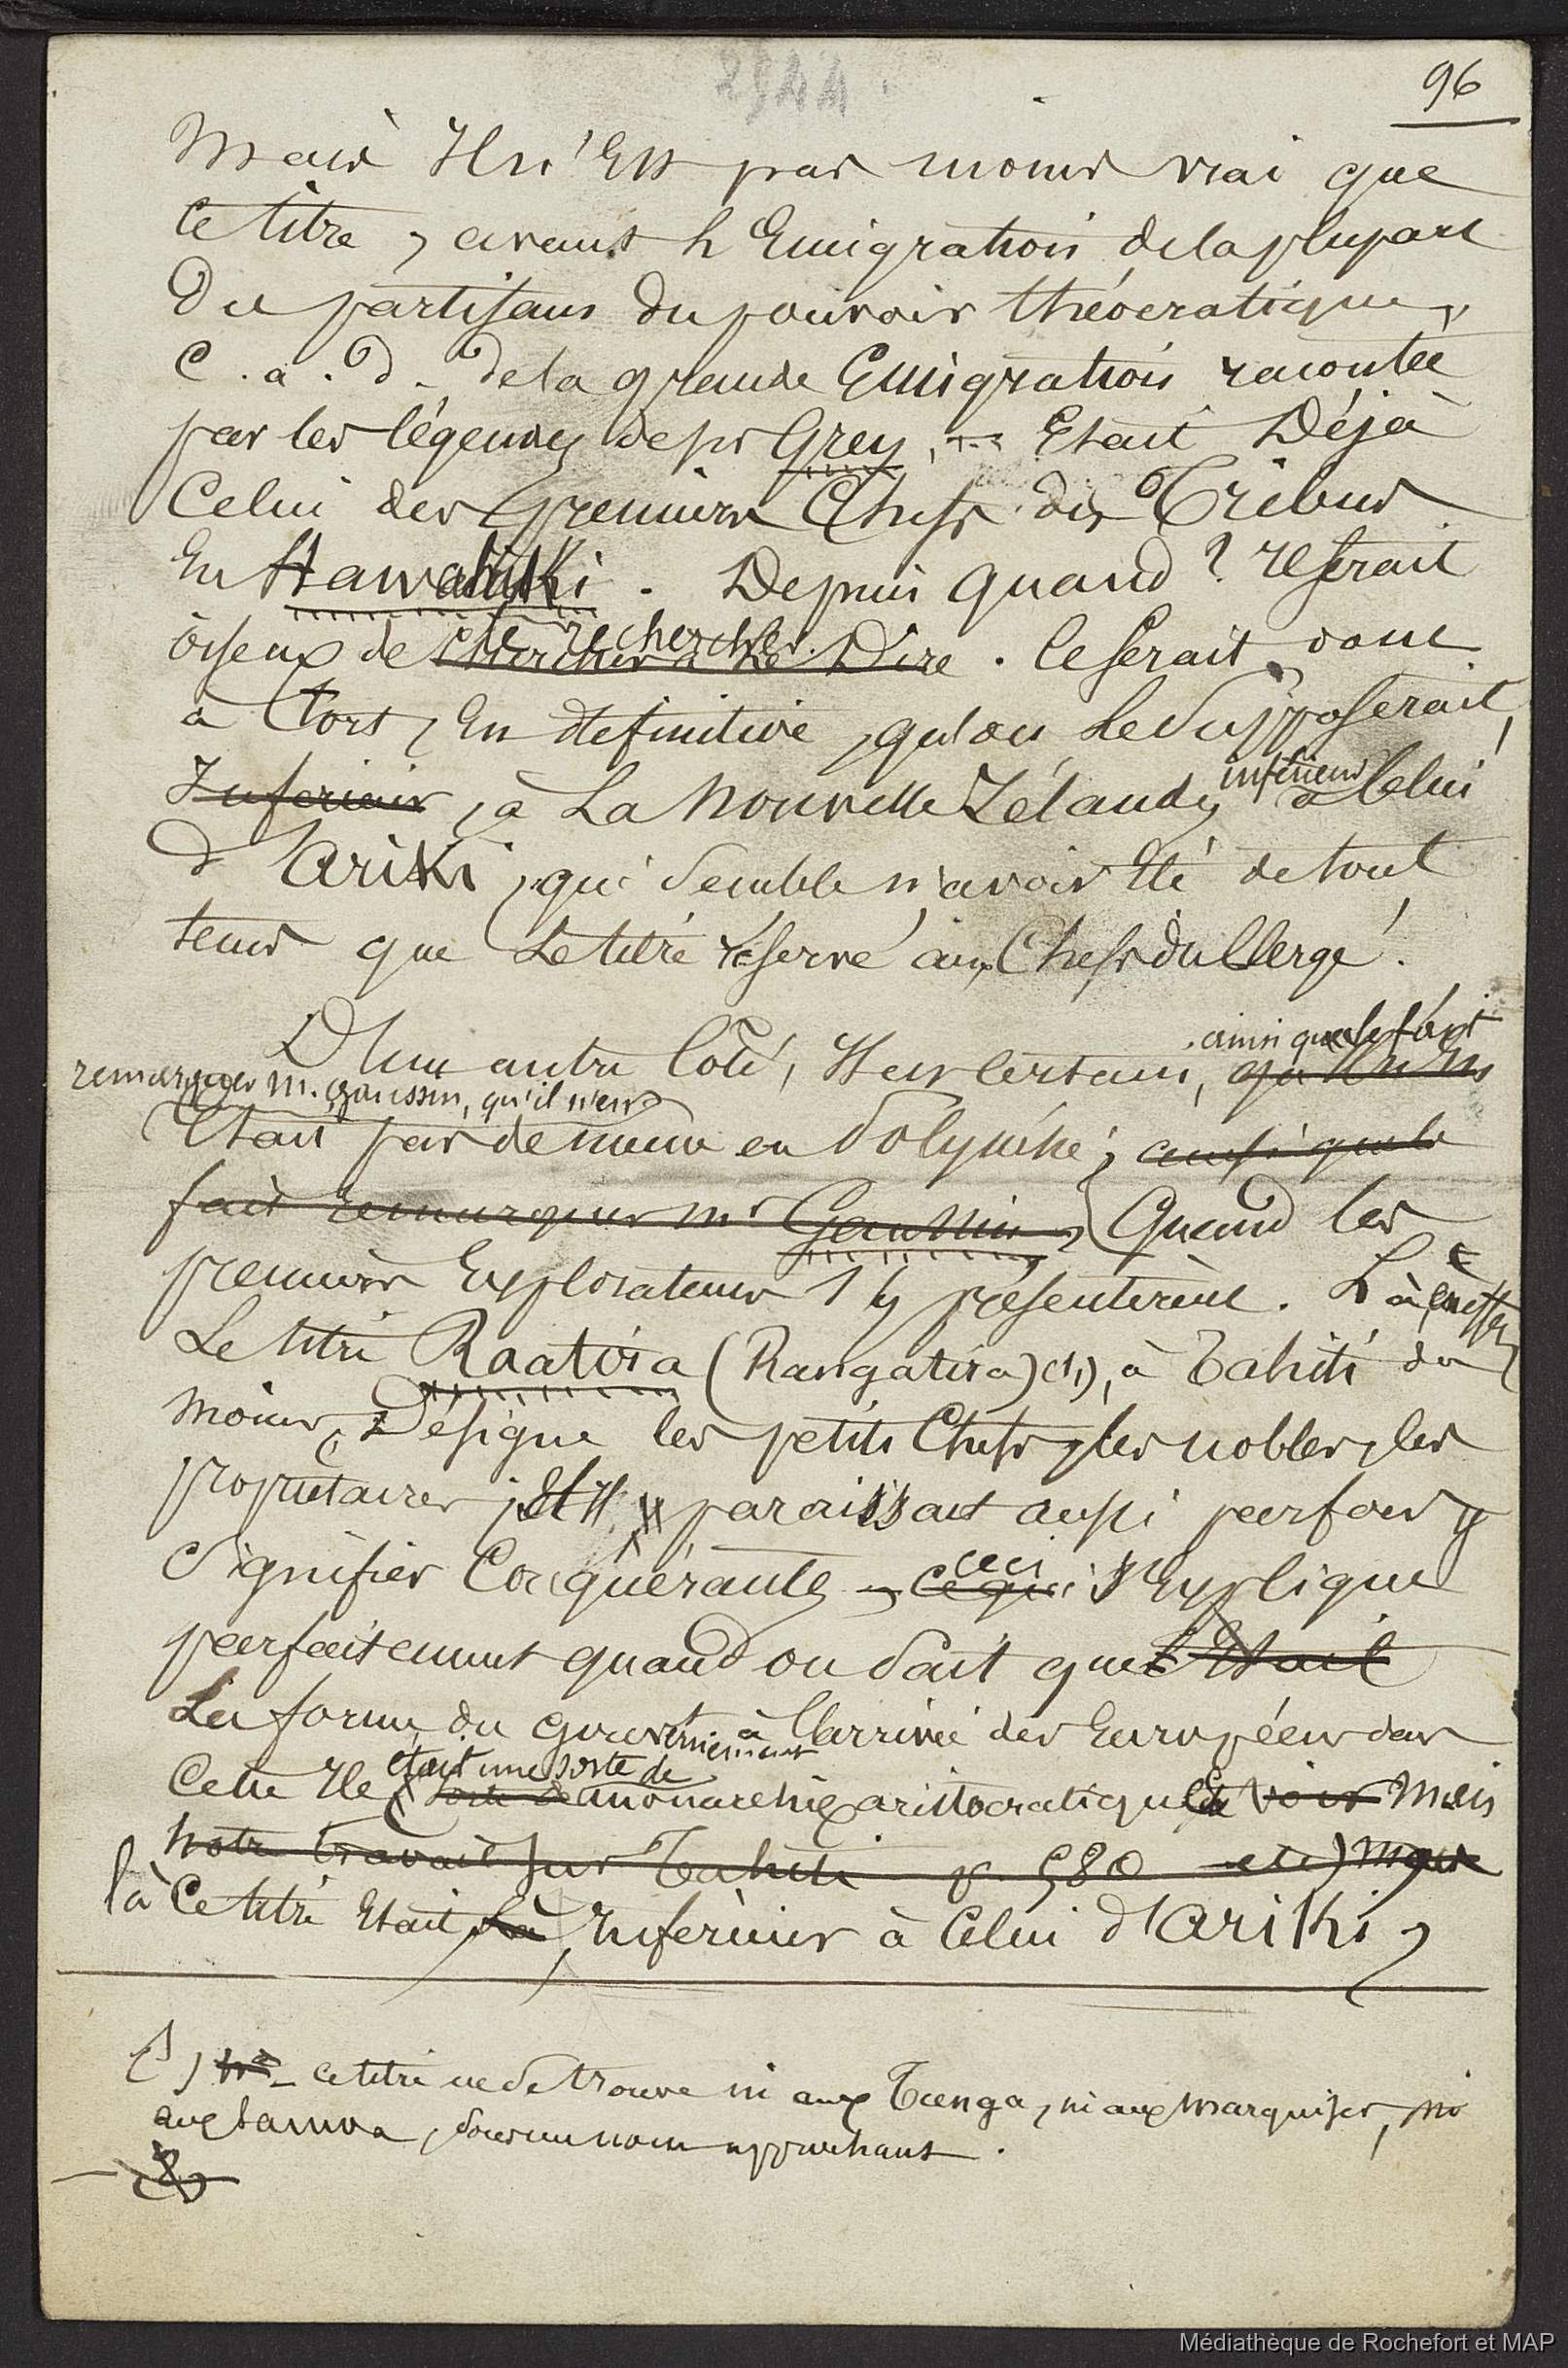 2944
96
Mais Il n'Est pas moins vrai que
Ce titre, avant l'Emigration de la plupart
Des partisans du pouvoir théocratique,
C. a. d. de la grande Emigration racontée
par les légendes de Sir Grey, Etait Déjà
Celui des premiers Chefs des Tribus
En Hawahiki. Depuis quand? Il serait
oiseux de chercher à le Dire. Ce serait donc
le rechercher.
à Tort, En définitive, qu'on le supposerait,
Inférieur, à La Nouvelle Zélande, inférieur à Celui
d'Ariki, qui semble n'avoir Eté de tout
tems que le titre réservé aux Chefs du Clergé.
D'Un autre Coté, Il est Certain, qu'Il n'En
ainsi que le fait
remarquer M. Gaussin, qu'il n'en
Etait pas de même en Polynésie, ainsi que le
fait remarquer Mr Gaussin, Quand les
premiers Explorateurs s'y présentèrent. Là, en effet,
Le titre Raatira (Rangatira) (1), à Tahiti du
moins, Désigne les petits Chefs, les nobles, les
propriétaires; Et Il paraissait aussi parfois y
Signifier Conquérants – ce qui s'Explique
ceci
parfaitement quand on Sait que Etait
La forme du gouvernement à l'arrivée des Européens dans
Cette Ile était une sorte de
sorte de monarchie aristocratique voir Mais
notre travail sur Tahiti p. 580
là Ce titre Etait Là, Inférieur à Celui d'Ariki,
(1) Ce titre ne se trouve ni aux Tunga, ni aux Marquises, ni
aux Samoa, sous un nom approchant.